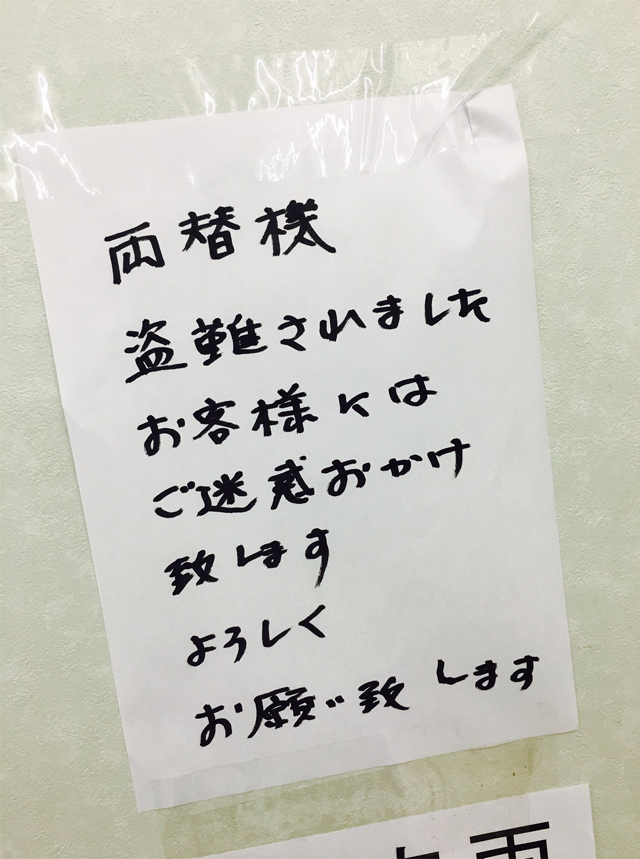 両替機
盗難されました
お客様には
ご迷惑おかけ
致します
よろしく
お願い致します
両